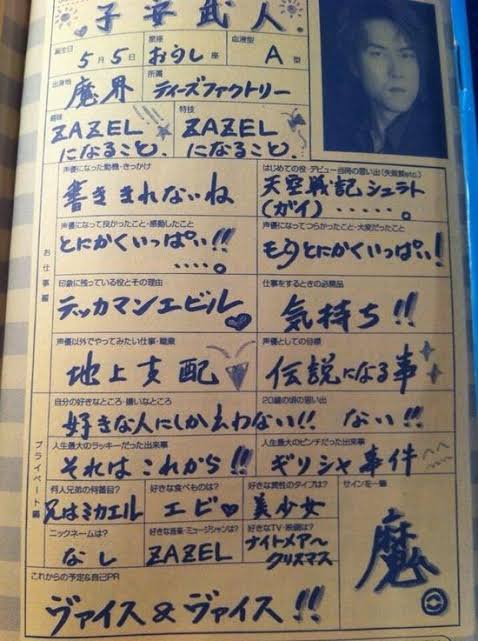 子安武人
誕生日
5月5日
星座
おうし座
血液型
A型
出身地
魔界
所属
ティーズファクトリー
趣味
ZAZELになること。
特技
ZAZELになること。
お仕事編
声優になった動機・きっかけ
書ききれないね
はじめての役・デビュー当時の思い出(失敗談etc.)
天空戦記シュラト
(ガイ)・・・・・!
声優になって良かったこと・感動したこと
とにかくいっぱい!!
・・・・・。
声優になってつらかったこと・大変だったこと
もうとにかくいっぱい!
印象に残っている役とその理由
テッカマンエビル
仕事をするときの必需品
気持ち!!
声優以外でやってみたい仕事・職業
地上支配
声優としての目標
伝説になる事
プライベート編
自分の好きなところ・嫌いなところ
好きな人にしか云わない!!
20歳の頃の思い出
ない!!
人生最大のラッキーだった出来事
それはこれから!!
人生最大のピンチだった出来事
ギリシャ事件
何人兄弟の何番目?
兄はミカエル
好きな食べものは?
エビ
好きな異性のタイプは?
美少女
サインを一筆
魔
ニックネームは?
なし
好きな音楽・ミュージシャンは?
ZAZEL
好きなTV・映画は?
ナイトメア〜
クリスマス
これからの予定&自己PR
ヴァイス&ヴァイス!!